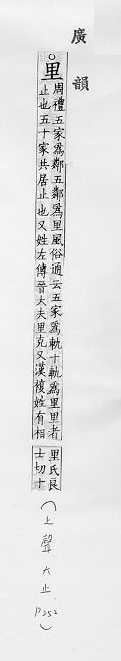 廣韻
里
周禮五家為鄰五鄰為里風俗通云五家為軌十軌為里里者
止也五十家共居止也又姓左傳晉大夫里克又漢複姓有相
里氏良
士切十
(上聲六止 P252)